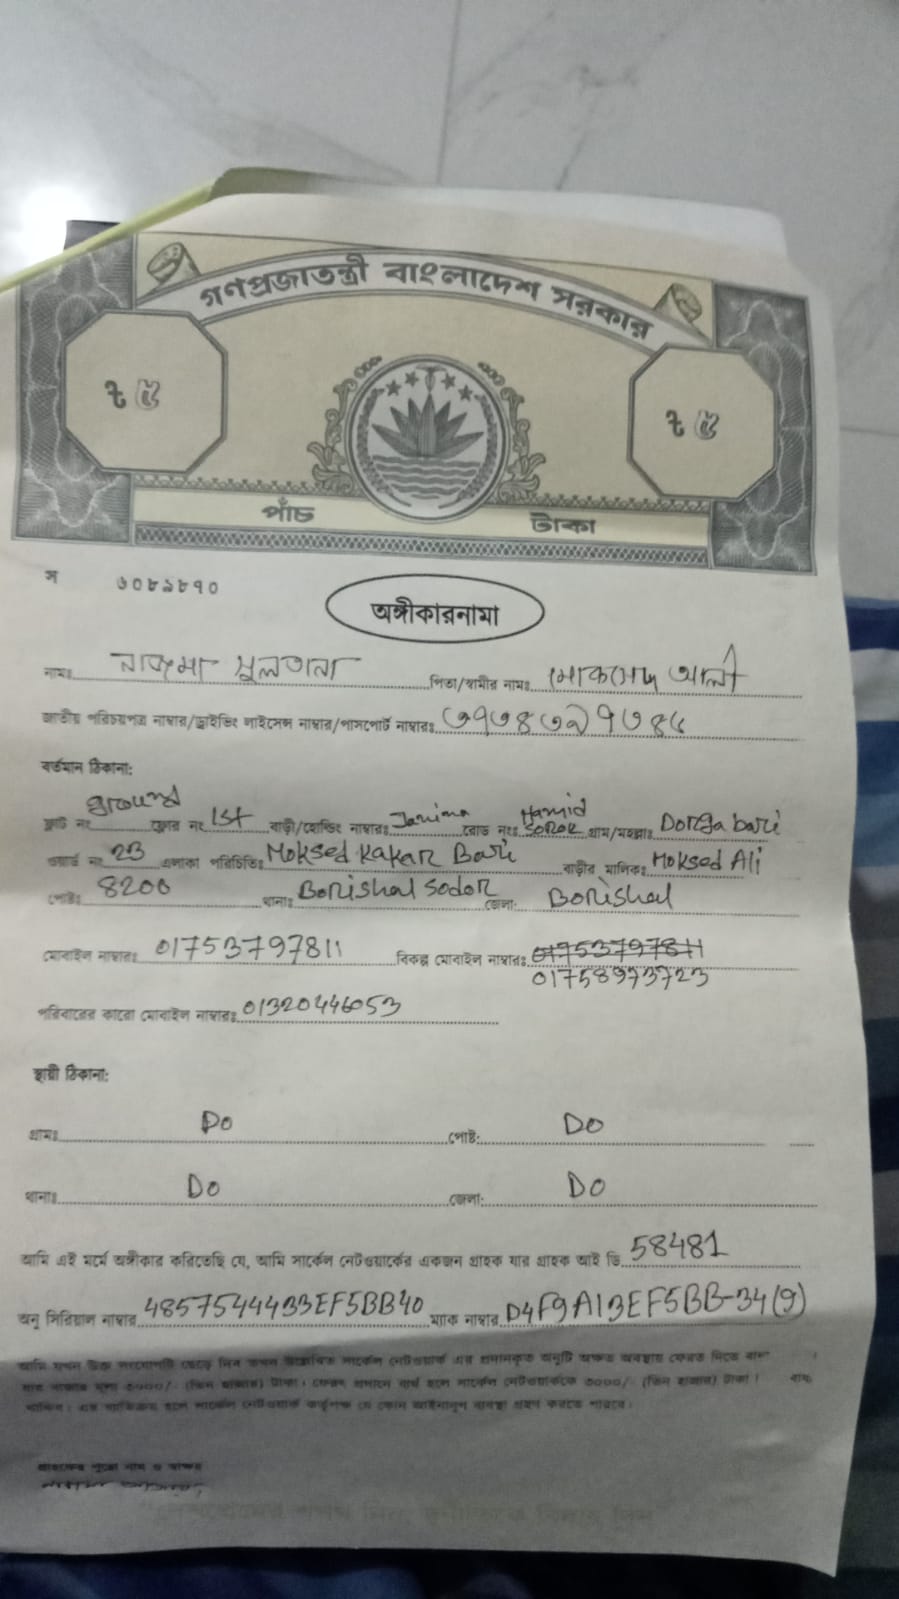 গণপ্রজাতন্ত্রী বাংলাদেশ সরকার
ট ৫ ট ৫
পাঁচ টাকা
স ৬০৮৯৮৭০
অঙ্গীকারনামা
নামঃ নাজমা সুলতানা পিতা/স্বামীর নামঃ মোকসেদ আলী
জাতীয় পরিচয়পত্র নাম্বার/ড্রাইভিং লাইসেন্স নাম্বার/পাসপোর্ট নাম্বারঃ
বর্তমান ঠিকানা:
ফ্লাট নং ground ফ্লোর নং 1st বাড়ী/হোল্ডিং নাম্বারঃ রোড নংঃ Hamid Sorok গ্রাম/মহল্লাঃ Dorga bari
ওয়ার্ড নং 23 এলাকা পরিচিতিঃ Moksed Kakar Bari বাড়ীর মালিকঃ Moksed Ali
পোষ্টঃ 8200 থানাঃ Borishal Sodor জেলা: Borishal
মোবাইল নাম্বারঃ 01753797811 বিকল্প মোবাইল নাম্বারঃ 01753797811
01758973723
পরিবারের কারো মোবাইল নাম্বারঃ 01320446053
স্থায়ী ঠিকানা:
গ্রামঃ Do পোষ্ট: Do
থানাঃ Do জেলা: Do
আমি এই মর্মে অঙ্গীকার করিতেছি যে, আমি সার্কেল নেটওয়ার্কের একজন গ্রাহক যার গ্রাহক আই ডি 58481
অনু সিরিয়াল নাম্বার 4857544433EF5BB40 ম্যাক নাম্বার D4F9A13EF5BB-34(9)
আমি যখন উক্ত সংযোগটি ছেড়ে দিব তখন উল্লেখিত সার্কেল নেটওয়ার্ক এর প্রদানকৃত অনুটি অক্ষত অবস্থায় ফেরত দিতে বাধ্য
যার বাজার মূল্য ৩০০০/- (তিন হাজার) টাকা। ফেরৎ প্রদানে ব্যর্থ হলে সার্কেল নেটওয়ার্ককে ৩০০০/- (তিন হাজার) টাকা
থাকিব। এর ব্যতিক্রম হলে সার্কেল নেটওয়ার্ক কর্তৃপক্ষ যে কোন আইনানুগ ব্যবস্থা গ্রহণ করতে পারবে।
গ্রাহকের পুরো নাম ও স্বাক্ষর